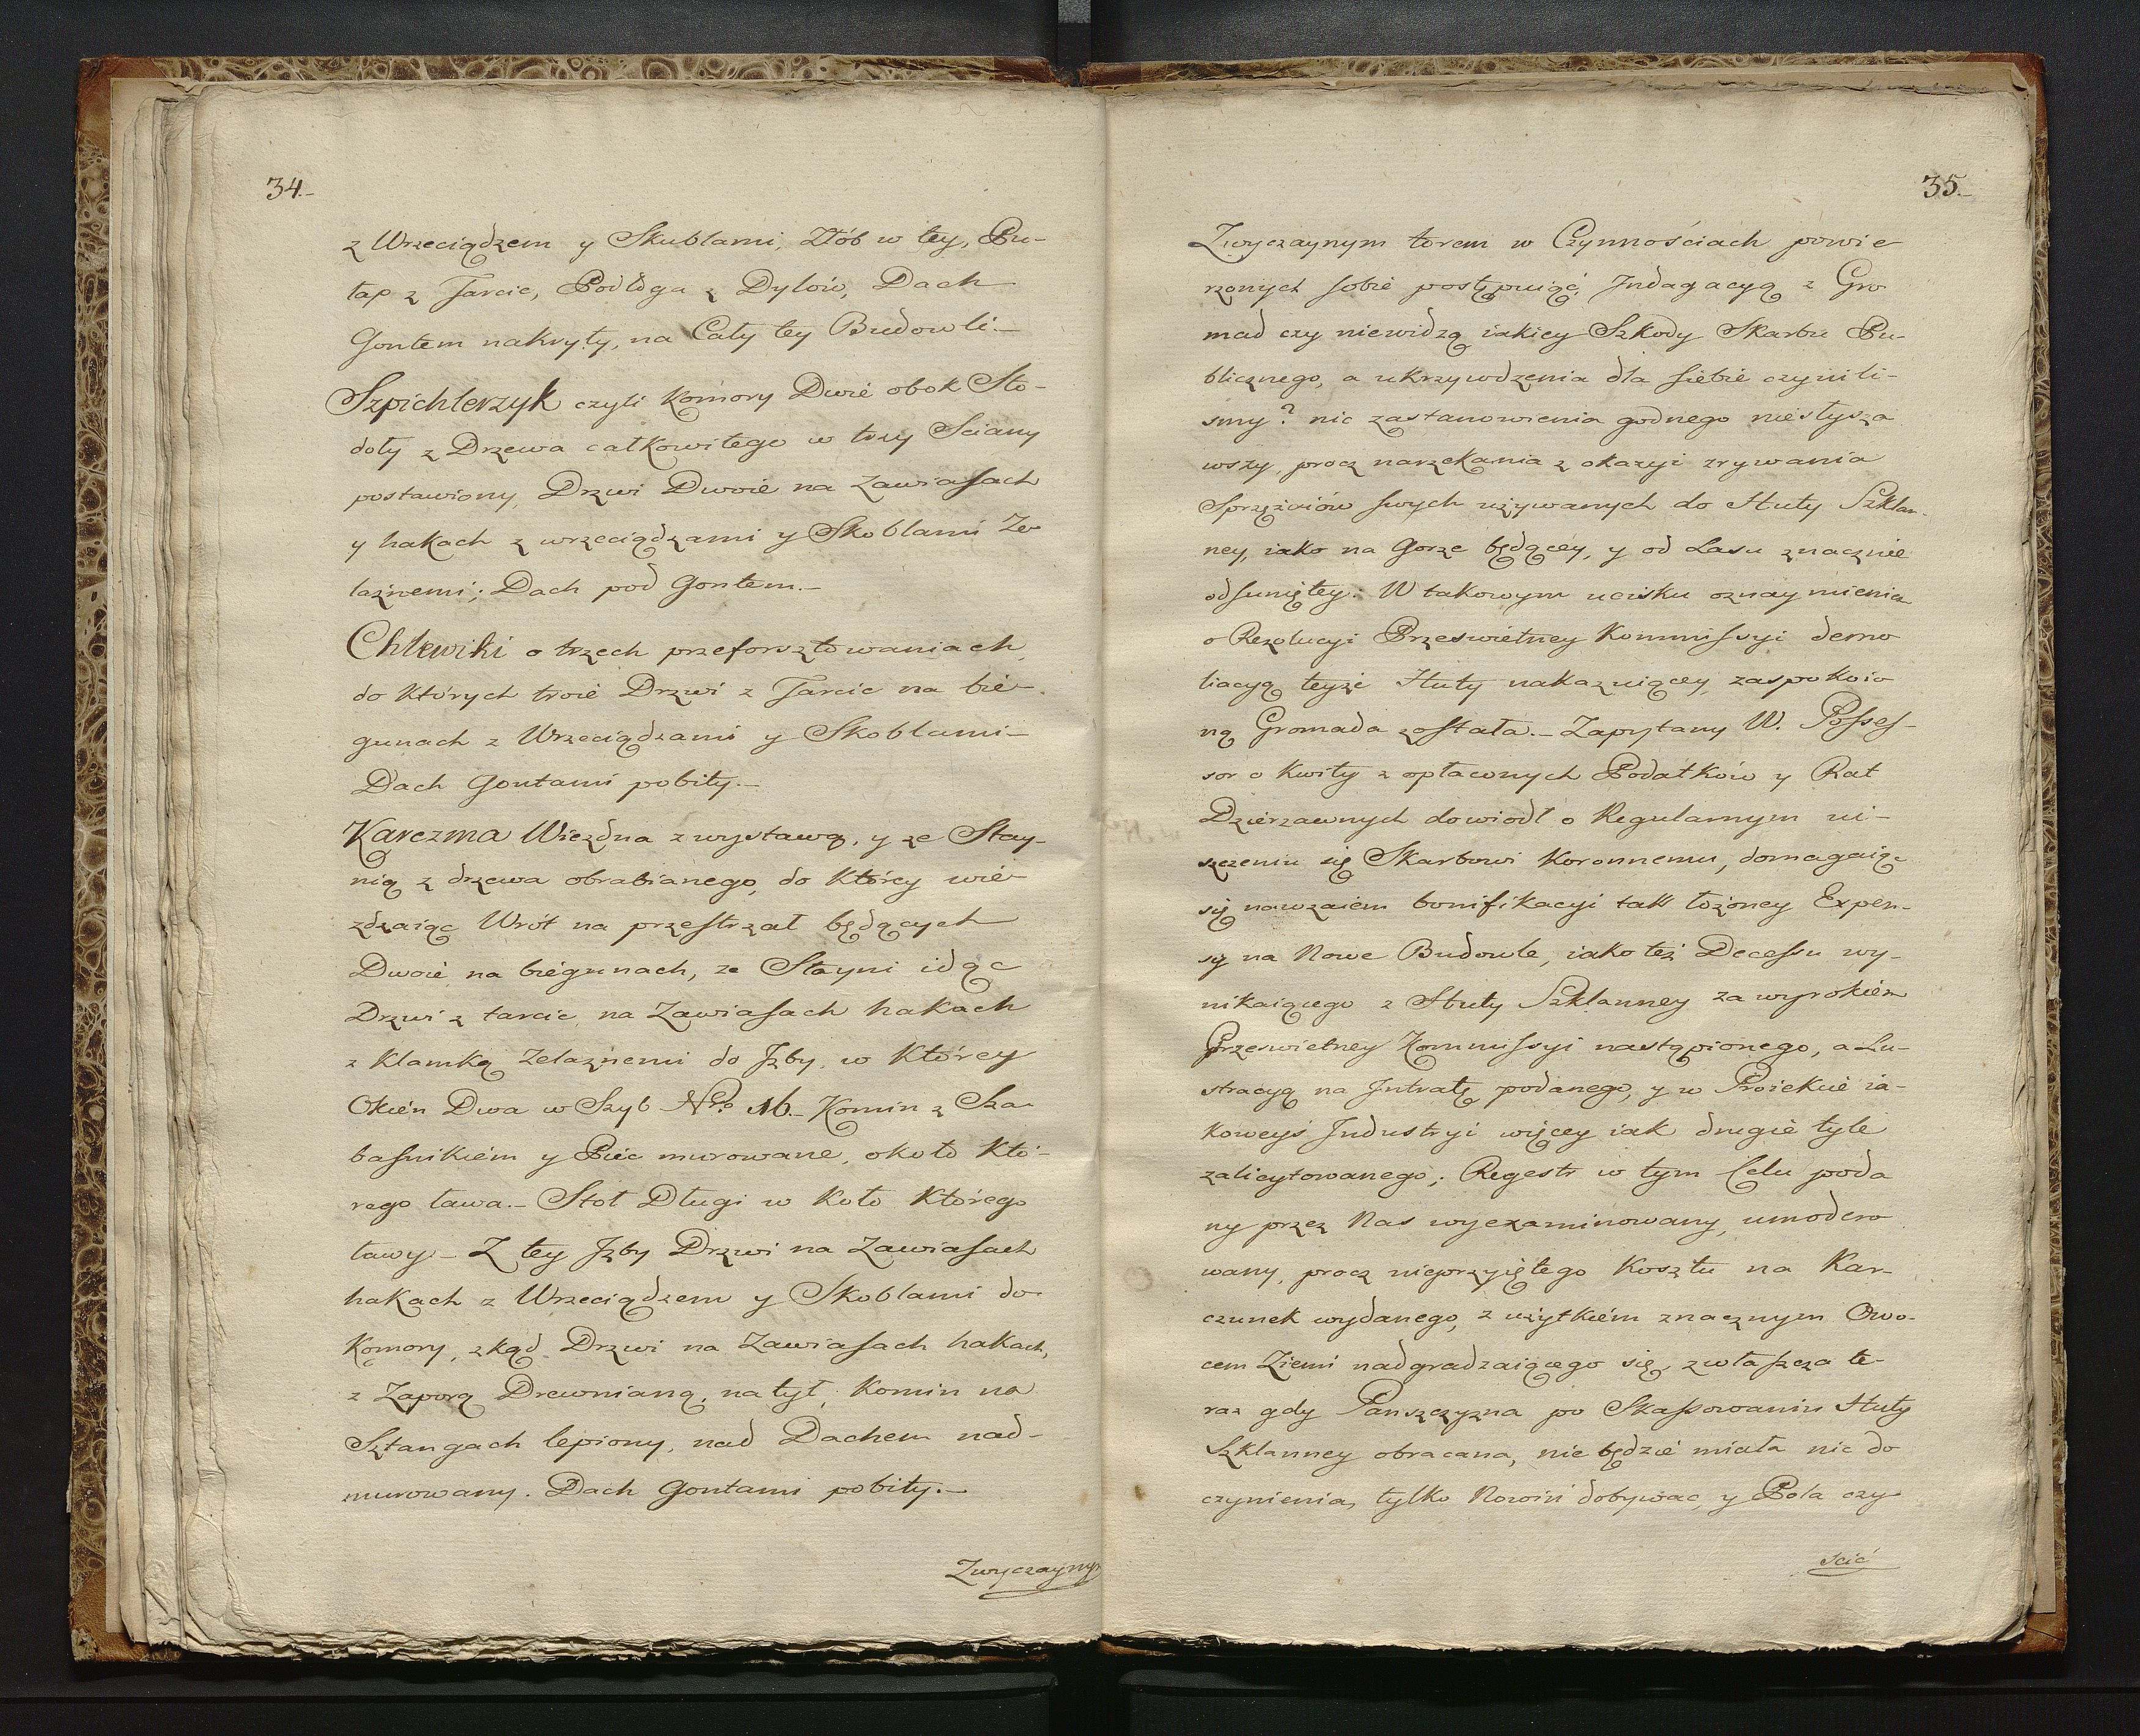 34.-
z Wrzeciądzem y Skublami, Złób w tey, Pu-
łap z Tarcic, Podłoga z Dylów, Dach
Gontem nakryty, na Cały tey Budowli.-
Szpichlerzyk czyli Komory Dwie obok Sto-
doły z Drzewa całkowitego w trzy Sciany
postawiony, Drzwi Dwoie na Zawiasach
y hakach z wrzeciądzami y Skoblami Że
laznemi; Dach pod Gontem.-
Chlewiki o trzech przeforsztowaniach,
do których troie Drzwi z Tarcic na bie-
gunach z Wrzeciądzami y Skoblami-
Dach Gontami pobity.-
Karczma Wiezdna z wystawą, y ze Stay-
nią z drzewa obrabianego, do którey wie-
zdzaiąc Wrót na przestrzał będących
Dwoie na biegunach, ze Stayni idąc
Drzwi z tarcic na Zawiasach hakach
z Klamką Żelaznemi do Jzby, w którey
Okien Dwa w Szyb Nro 16.- Komin z Sza-
basnikiem y Piec murowane, około któ-
rego ława.- Stoł Długi w koło którego
ławy- Z tey Jzby Drzwi na Zawiasach
hakach z Wrzeciądzem y Skoblami do
Komory, zkąd Drzwi na Zawiasach hakach,
z Zaporą Drewnianą, na tył, Komin na
Sztangach lepiony, nad Dachem nad-
murowany. Dach Gontami pobity.-
Zwyczaynym
35.-
Zwyczaynym torem w Czynnościach powie
rzonych sobie postępuiąc, Jndagacyą z Gro
mad czy niewidzą iakiey Szkody Skarbu Pu-
blicznego, a ukrzywdzenia dla siebie czynili-
smy? nic zastanowienia godnego niesłysza
wszy, procz narzekania z okazyi zrywania
Sprzęziów swych używanych do Huty Szklan-
ney, iako na Gorze będącey, y od Lasu znacznie
odsuniętey: W takowym ucisku oznaymienia
o Rezolucyi Przeswietney Kommissyi demo
liacyą teyże Huty nakazuiącey, zaspokoio
ną Gromada została.- Zapytany W. Posses-
sor o Kwity z opłaconych Podatków y Rat
Dzierzawnych dowiodł o Regularnym ui-
szczeniu się Skarbowi Koronnemu, domagaiąc
się nawzaiem bonifikacyi tak łożoney Expen-
sy na Nowe Budowle, iako też Decessu wy-
nikaiącego z Huty Szklanney za wyrokiem
Przeswietney Kommissyi nastąpionego, a Lu-
stracyą na Jntratę podanego, y w Proiekcie ia-
koweyś Jndustryi więcey iak drugie tyle
zalicytowanego; Regestr w tym Celu poda
ny przez Nas wyexaminowany, umodero
wany, procz nieprzyiętego Kosztu na Kar-
czunek wydanego, z użytkiem znacznym Owo-
cem Ziemi nadgradzaiącego się, zwłaszcza te-
raz gdy Panszczyzna po Skassowaniu Huty
Szklanney obracana, nie będzie miała nic do
czynienia, tylko Nowin dobywac, y Pola czy
scić